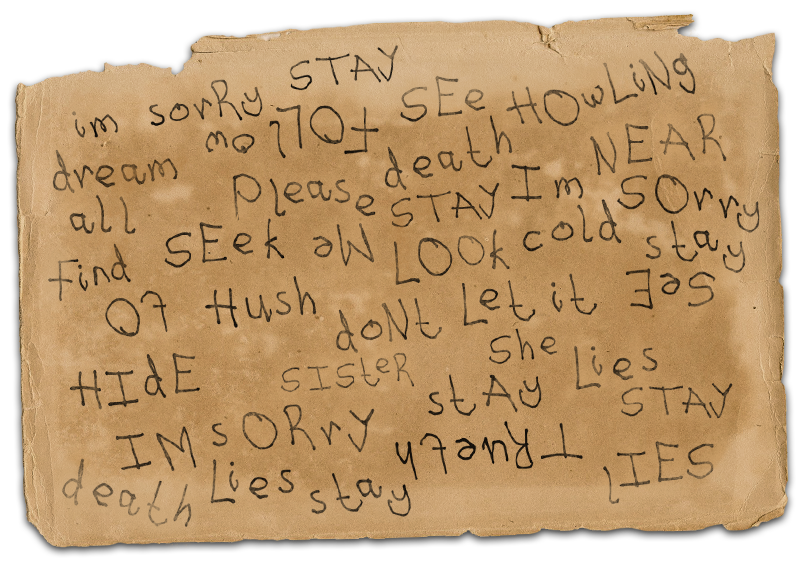 im sorRy STAY SEe HOwLiNg
dream FOLLow death NEAR
all Please STAY Im SOrry
find SEek Me LOOk cold stay
tO HusH doNt Let it SeE
HIdE SISteR She Lies
stAy STAY
IM sORrY TRueth lIES
death Lies stay